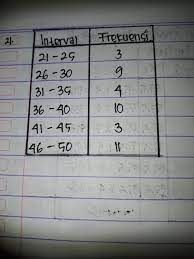 21. Interval Frekuensi
21 - 25 3
26 - 30 9
31 - 35 4
36 - 40 10
41 - 45 3
46 - 50 11